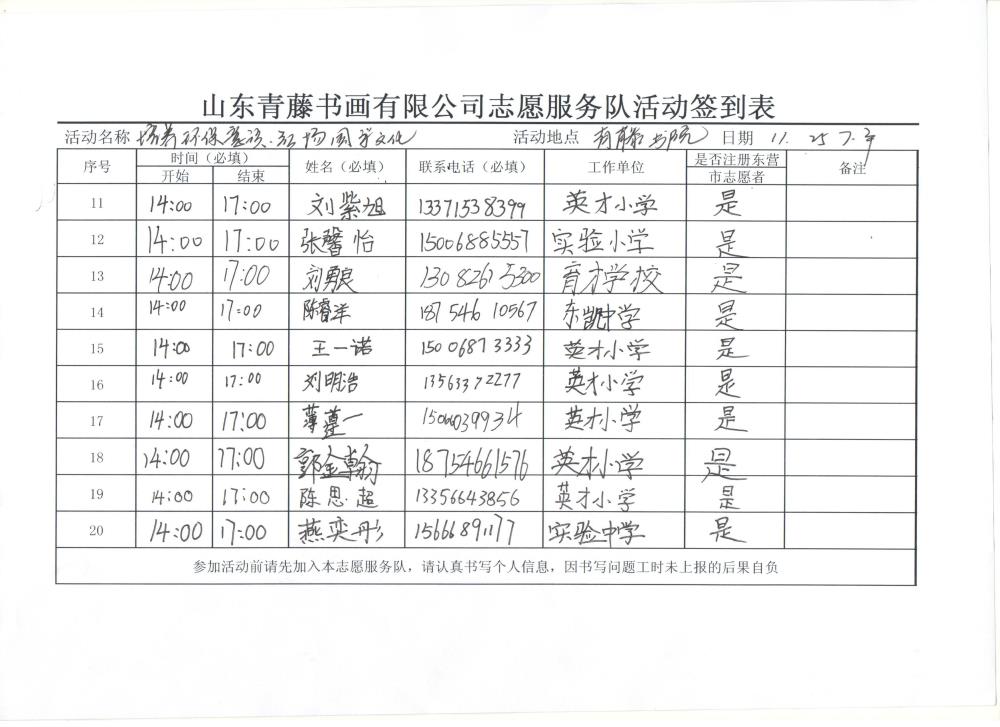 山东青藤书画有限公司志愿服务队活动签到表
活动名称 培养环保意识.弘扬国学文化 活动地点 青藤书院 日期 11. 25
序号 时间（必填） 姓名（必填） 联系电话（必填） 工作单位 是否注册东营市志愿者 备注
开始 结束
11 14:00 17:00 刘紫旭 13371538399 英才小学 是
12 14:00 17:00 张馨怡 15006885557 实验小学 是
13 14:00 17:00 刘勇良 13082615300 育才学校 是
14 14:00 17:00 陈睿洋 18754610567 东凯中学 是
15 14:00 17:00 王一诺 15006873333 英才小学 是
16 14:00 17:00 刘明浩 13563372277 英才小学 是
17 14:00 17:00 薄萱一 英才小学 是
18 14:00 17:00 郭金翰 18754661576 英才小学 是
19 14:00 17:00 陈思超 13356643856 英才小学 是
20 14:00 17:00 燕奕彤 15666891177 实验中学 是
参加活动前请先加入本志愿服务队，请认真书写个人信息，因书写问题工时未上报的后果自负